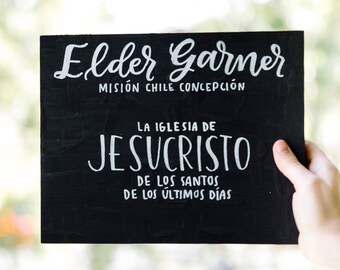 Elder Garner
MISIÓN CHILE CONCEPCIÓN
LA IGLESIA DE
JESUCRISTO
DE LOS SANTOS
DE LOS ÚLTIMOS DÍAS